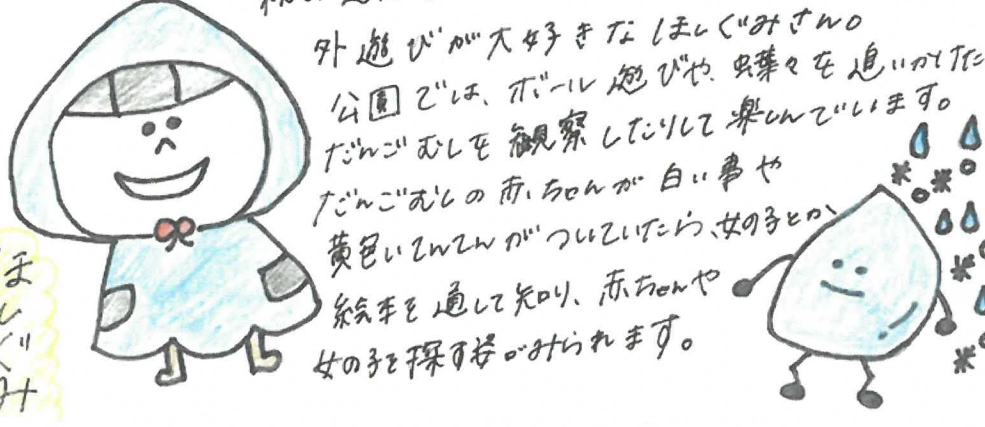 外遊びが大好きなほしぐみさん。
公園では、ボール遊びや、蝶々を追いかけた
だんごむしを観察したりして楽しんでいます。
だんごむしの赤ちゃんが白い事や
黄色いてんてんがついていたら、女の子とか、
絵本を通して知り、赤ちゃんや
女の子を探す姿がみられます。
ほしぐみ